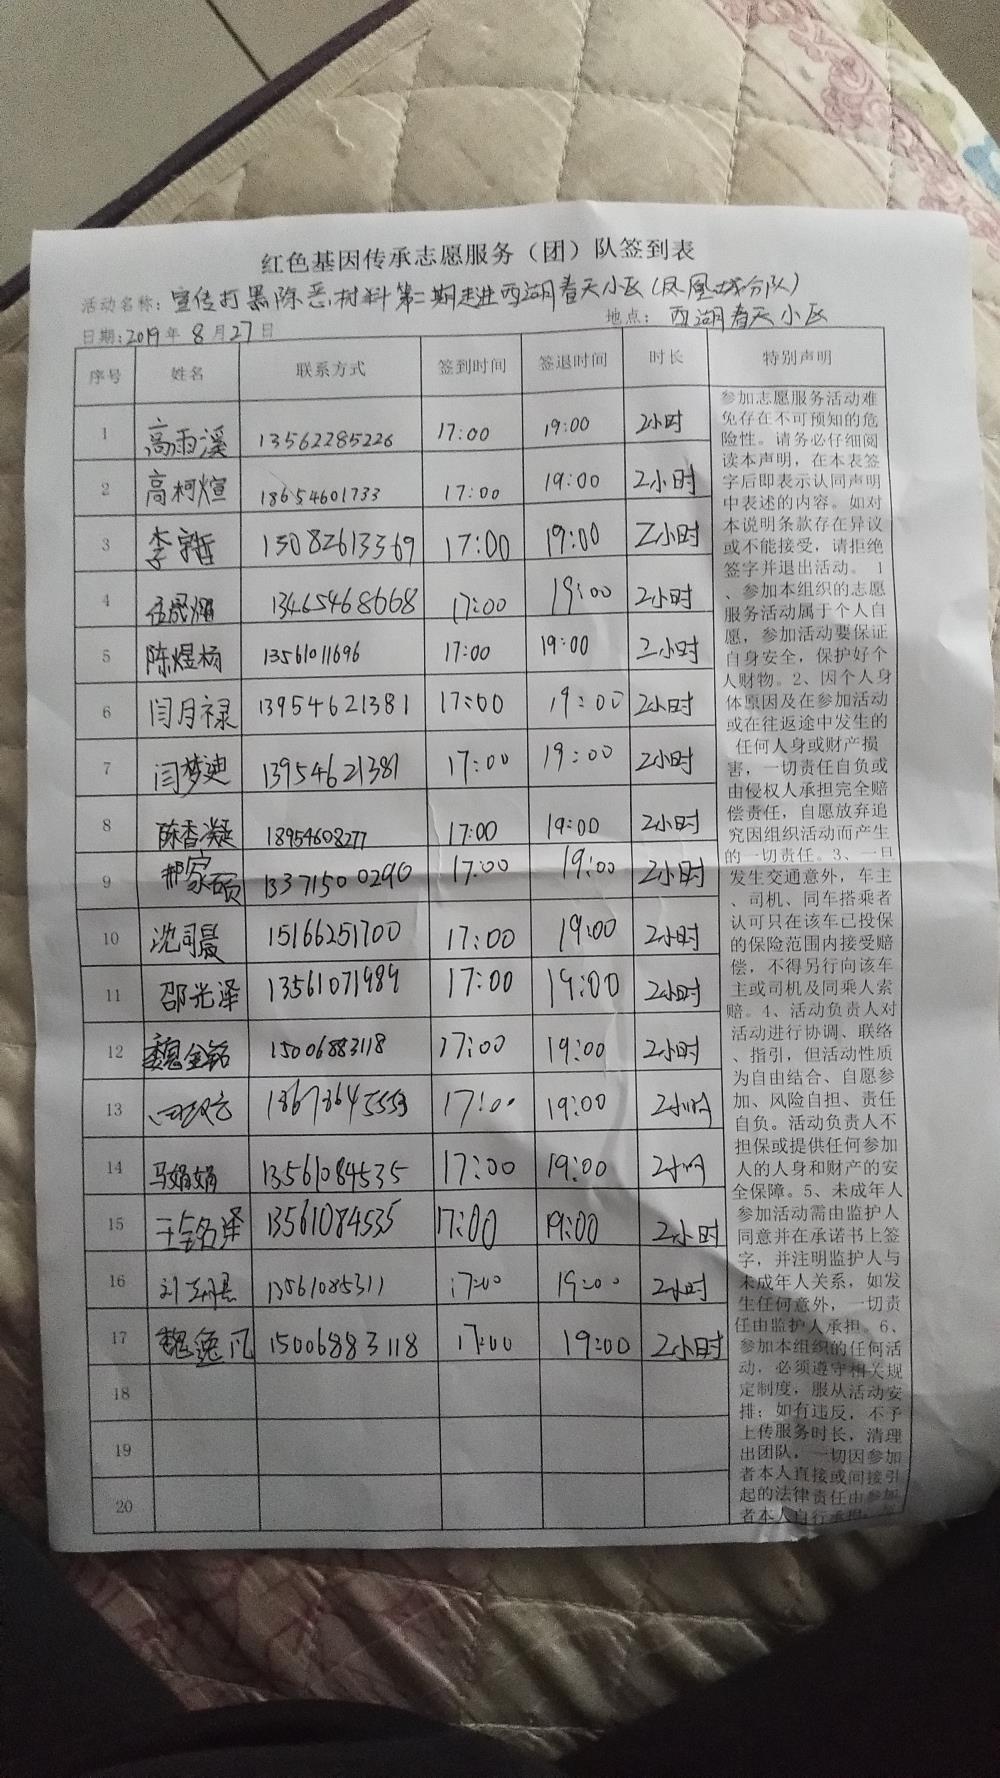 红色基因传承志愿服务（团）队签到表
活动名称：宣传打黑除恶材料第二期走进西湖春天小区(凤凰城分队)
日期:2019年8月27日 地点：西湖春天小区
序号 姓名 联系方式 签到时间 签退时间 时长 特别声明
1 高雨溪 13562285226 17:00 19:00 2小时
2 高柯煊 18654601733 17:00 19:00 2小时
3 李宇哲 15082613369 17:00 19:00 2小时
4 13465468668 17:00 19:00 2小时
5 陈煜杨 13561011696 17:00 19:00 2小时
6 闫月禄 13954621381 17:00 19:00 2小时
7 闫梦迪 13954621381 17:00 19:00 2小时
8 陈香凝 18954608277 17:00 19:00 2小时
9 郝家硕 13371500290 17:00 19:00 2小时
10 沈司晨 15166251700 17:00 19:00 2小时
11 邵光泽 13561071989 17:00 19:00 2小时
12 魏金铭 15006883118 17:00 19:00 2小时
13 17:00 19:00 2小时
14 马娟娟 13561084535 17:00 19:00 2小时
15 王铭泽 13561084535 17:00 19:00 2小时
16 13561085311 17:00 19:00 2小时
17 魏逸凡 15006883118 17:00 19:00 2小时
18
19
20
参加志愿服务活动难
免存在不可预知的危
险性。请务必仔细阅
读本声明，在本表签
字后即表示认同声明
中表述的内容。如对
本说明条款存在异议
或不能接受，请拒绝
签字并退出活动。 1
、参加本组织的志愿
服务活动属于个人自
愿，参加活动要保证
自身安全，保护好个
人财物。2、因个人身
体原因及在参加活动
或在往返途中发生的
任何人身或财产损
害，一切责任自负或
由侵权人承担完全赔
偿责任，自愿放弃追
究因组织活动而产生
的一切责任。3、一旦
发生交通意外，车主
、司机、同车搭乘者
认可只在该车已投保
的保险范围内接受赔
偿，不得另行向该车
主或司机及同乘人索
赔。4、活动负责人对
活动进行协调、联络
、指引，但活动性质
为自由结合、自愿参
加、风险自担、责任
自负。活动负责人不
担保或提供任何参加
人的人身和财产的安
全保障。5、未成年人
参加活动需由监护人
同意并在承诺书上签
字，并注明监护人与
未成年人关系，如发
生任何意外，一切责
任由监护人承担。6、
参加本组织的任何活
动，必须遵守相关规
定制度，服从活动安
排；如有违反，不予
上传服务时长，清理
出团队，一切因参加
者本人直接或间接引
起的法律责任由参加
者本人自行承担。